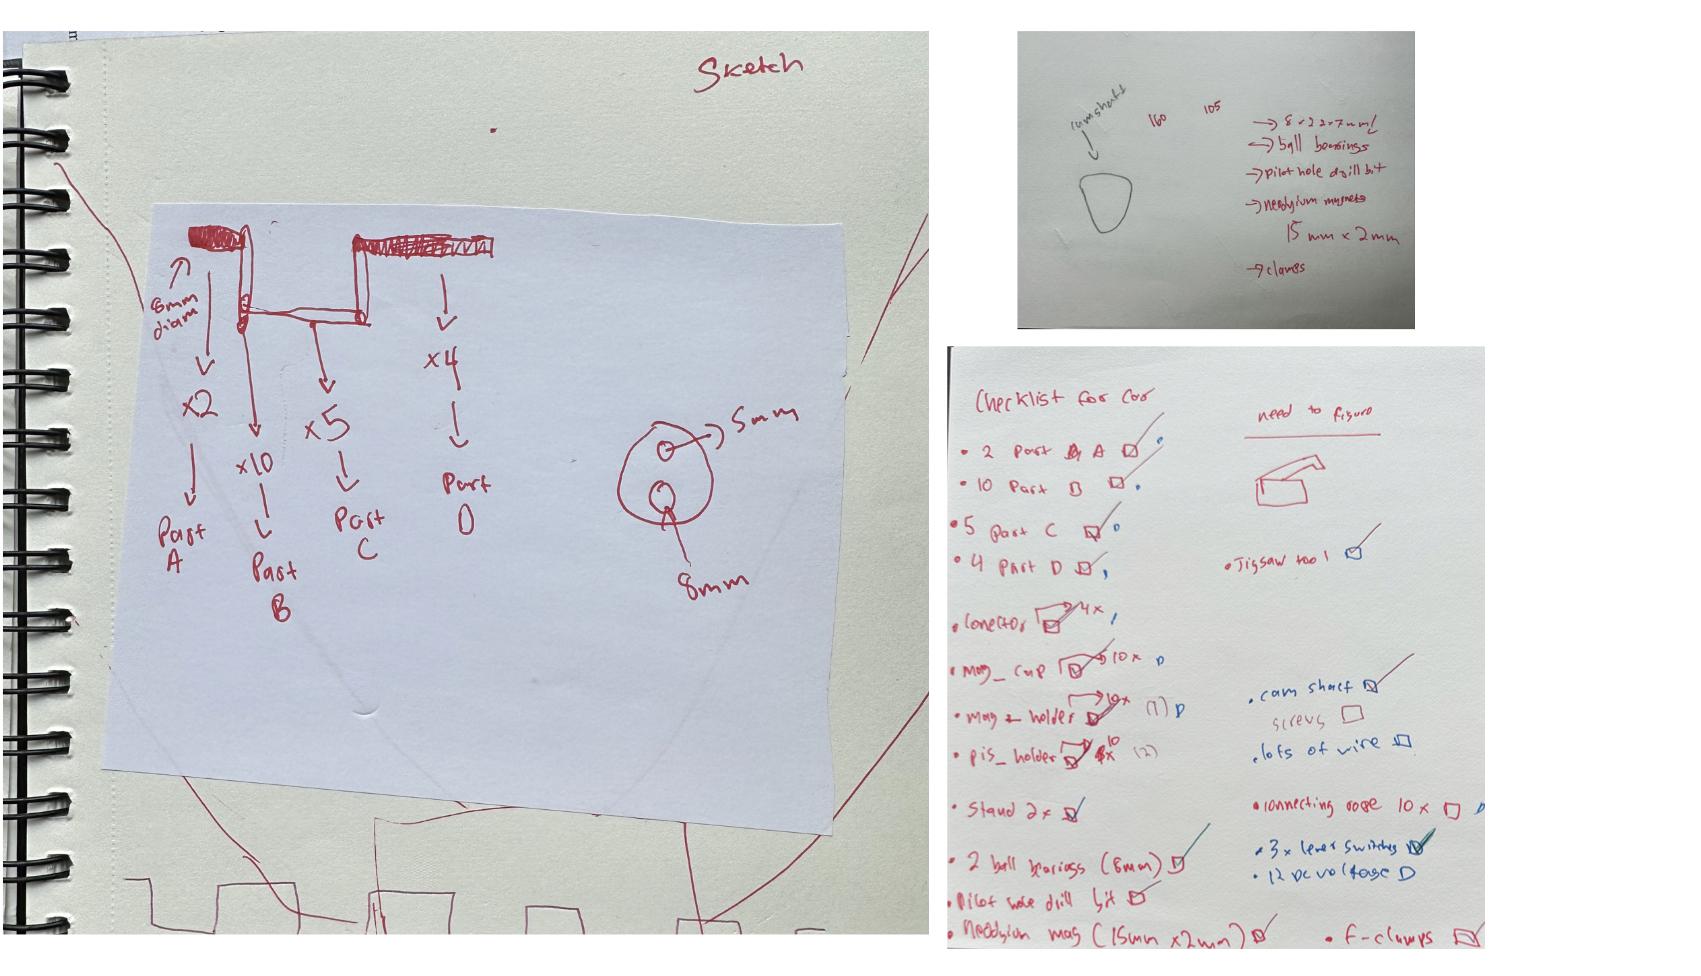 Sketch
8mm
diam
x2
x10
x5
x4
Part
A
Part
B
Part
C
Part
D
5mm
8mm
camshaft
160
105
→ 8 x 22 x 7 mm
→ ball bearings
→ pilot hole drill bit
→ neodyium magnets
15 mm x 2mm
→ clamps
Checklist for Car
• 2 Part A
• 10 Part B
• 5 Part C
• 4 Part D
• Conector 4x
• mag_ cap 10x
• mag_ holder 10x (1)
• pis_ holder 10 x (2)
• Stand 2x
• 2 ball bearings (8mm)
• Pilot hole drill bit
• Neodyium mag (15mm x 2mm)
need to figure
• Jigsaw tool
• cam shaft
screws
• lots of wire
• connecting 10x
• 3x lever switches
• 12 DC voltage
• F-clamps